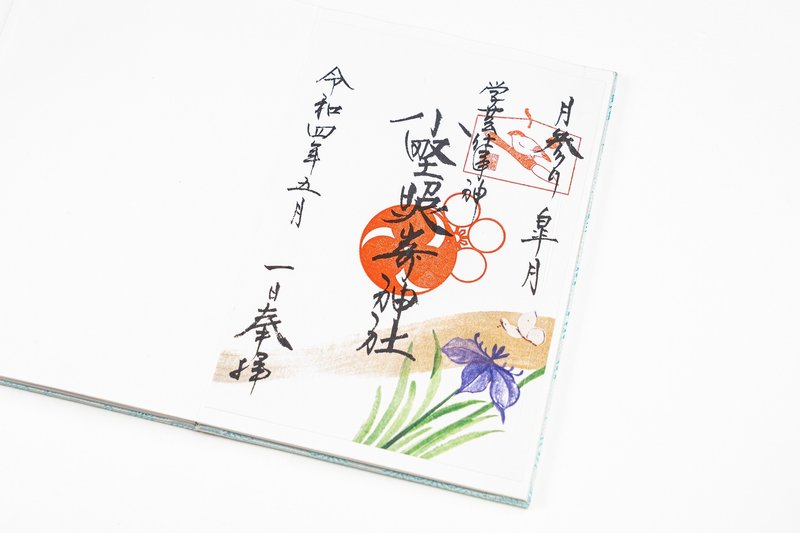 月参り 皐月
学芸仕事神
小野照崎神社
令和四年五月
一日奉拝